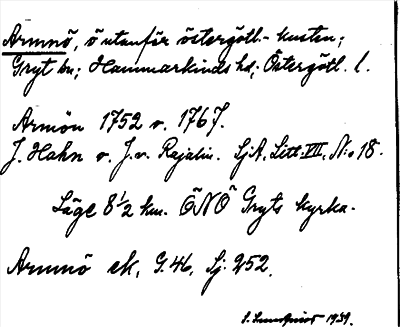 Armnö, ö utanför östergötl.-kusten;
Gryt sn; Hammarkinds hd; Östergötl. l.
Armön 1752 o. 1767.
J. Hahn o. J. v. Rajalin. SjA, Litt. VII, N:o 18.
Läge 8 1/2 km. ÖNÖ Gryts kyrka.
Armnö ek, G. 46, Sj. 252.
S. 1939.